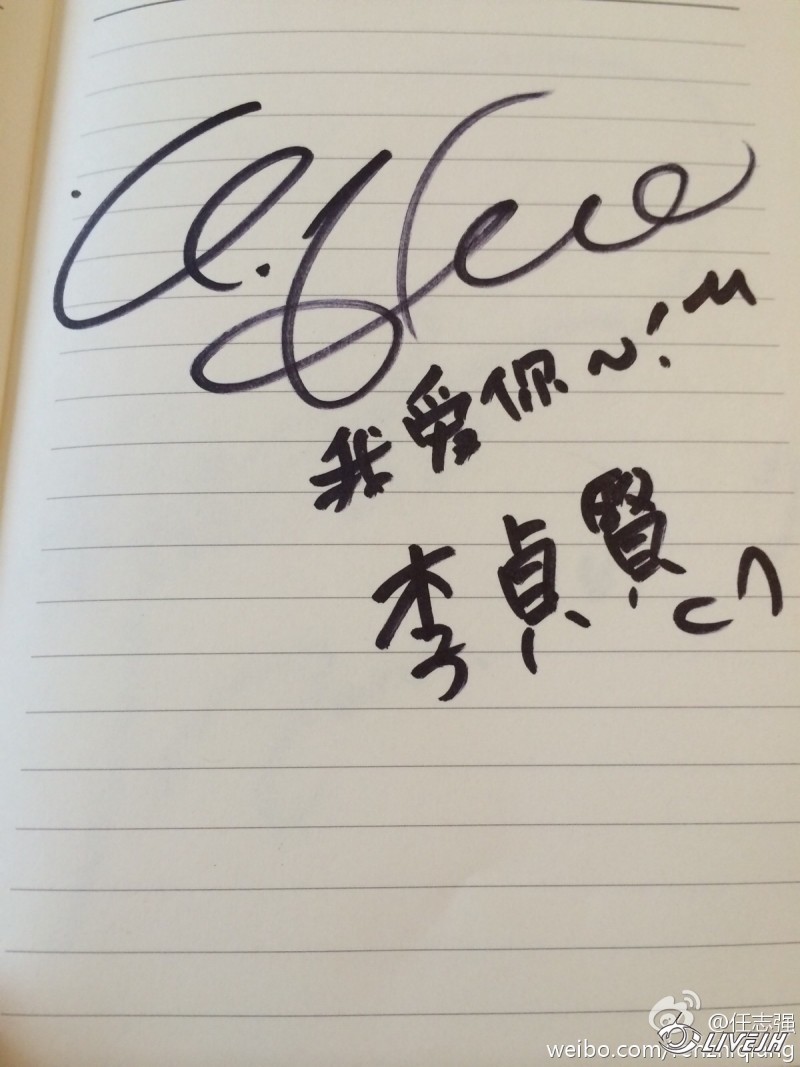 我爱你~!
李貞賢
@任志强
LIVEJH
weibo.com/renzhiqiang